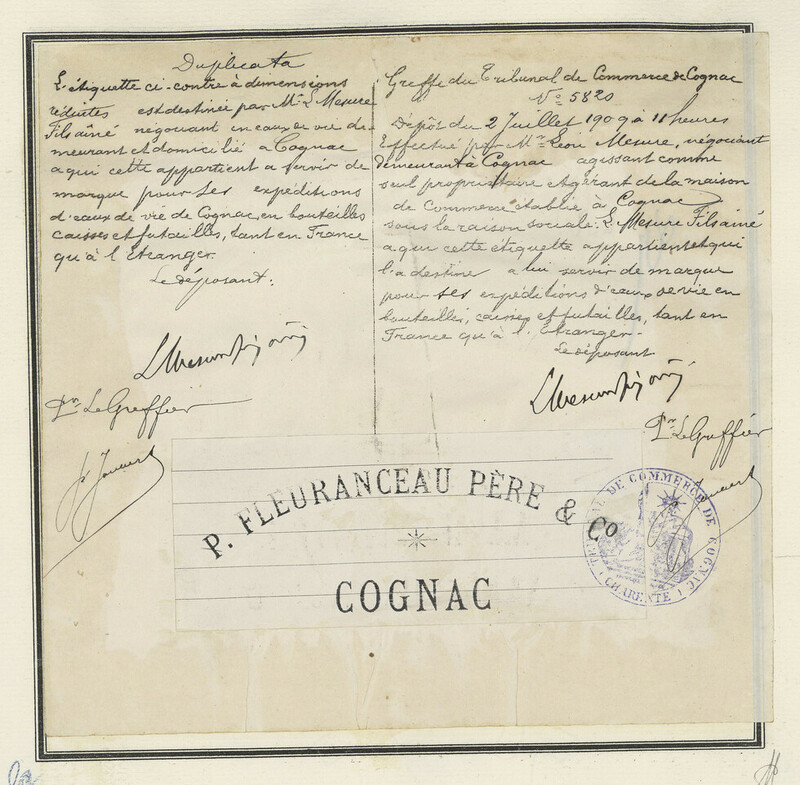 Duplicata
L'étiquette ci-contre à dimensions
réduites est destinée par Mr L. Mesure
Fils aîné négociant en eaux de vie de-
meurant et domicilié à Cognac
a qui cette appartient a servir de
marque pour ses expéditions
d'eaux de vie de Cognac, en bouteilles
caisses et futailles, tant en France
qu'à l'Étranger.
Le déposant:
L Mesure fils aîné
Pr. Le Greffier
Greffe du Tribunal de Commerce de Cognac
No 5820
Dépôt du 2 Juillet 1909 à 11 heures
Effectué par Mr Léon Mesure, négociant
demeurant à Cognac agissant comme
seul propriétaire et gérant de la maison
de Commerce établie à Cognac
sous la raison sociale: L. Mesure Fils aîné
a qui cette étiquette appartient et qui
l'a destine a lui servir de marque
pour ses expéditions d'eaux de vie en
bouteilles, caisses et futailles, tant en
France qu'à l'Étranger.
Le déposant
L Mesure fils aîné
Pr. Le Greffier
P. FLEURANCEAU PÈRE & Co
COGNAC
TRIBUNAL DE COMMERCE DE COGNAC
(CHARENTE)